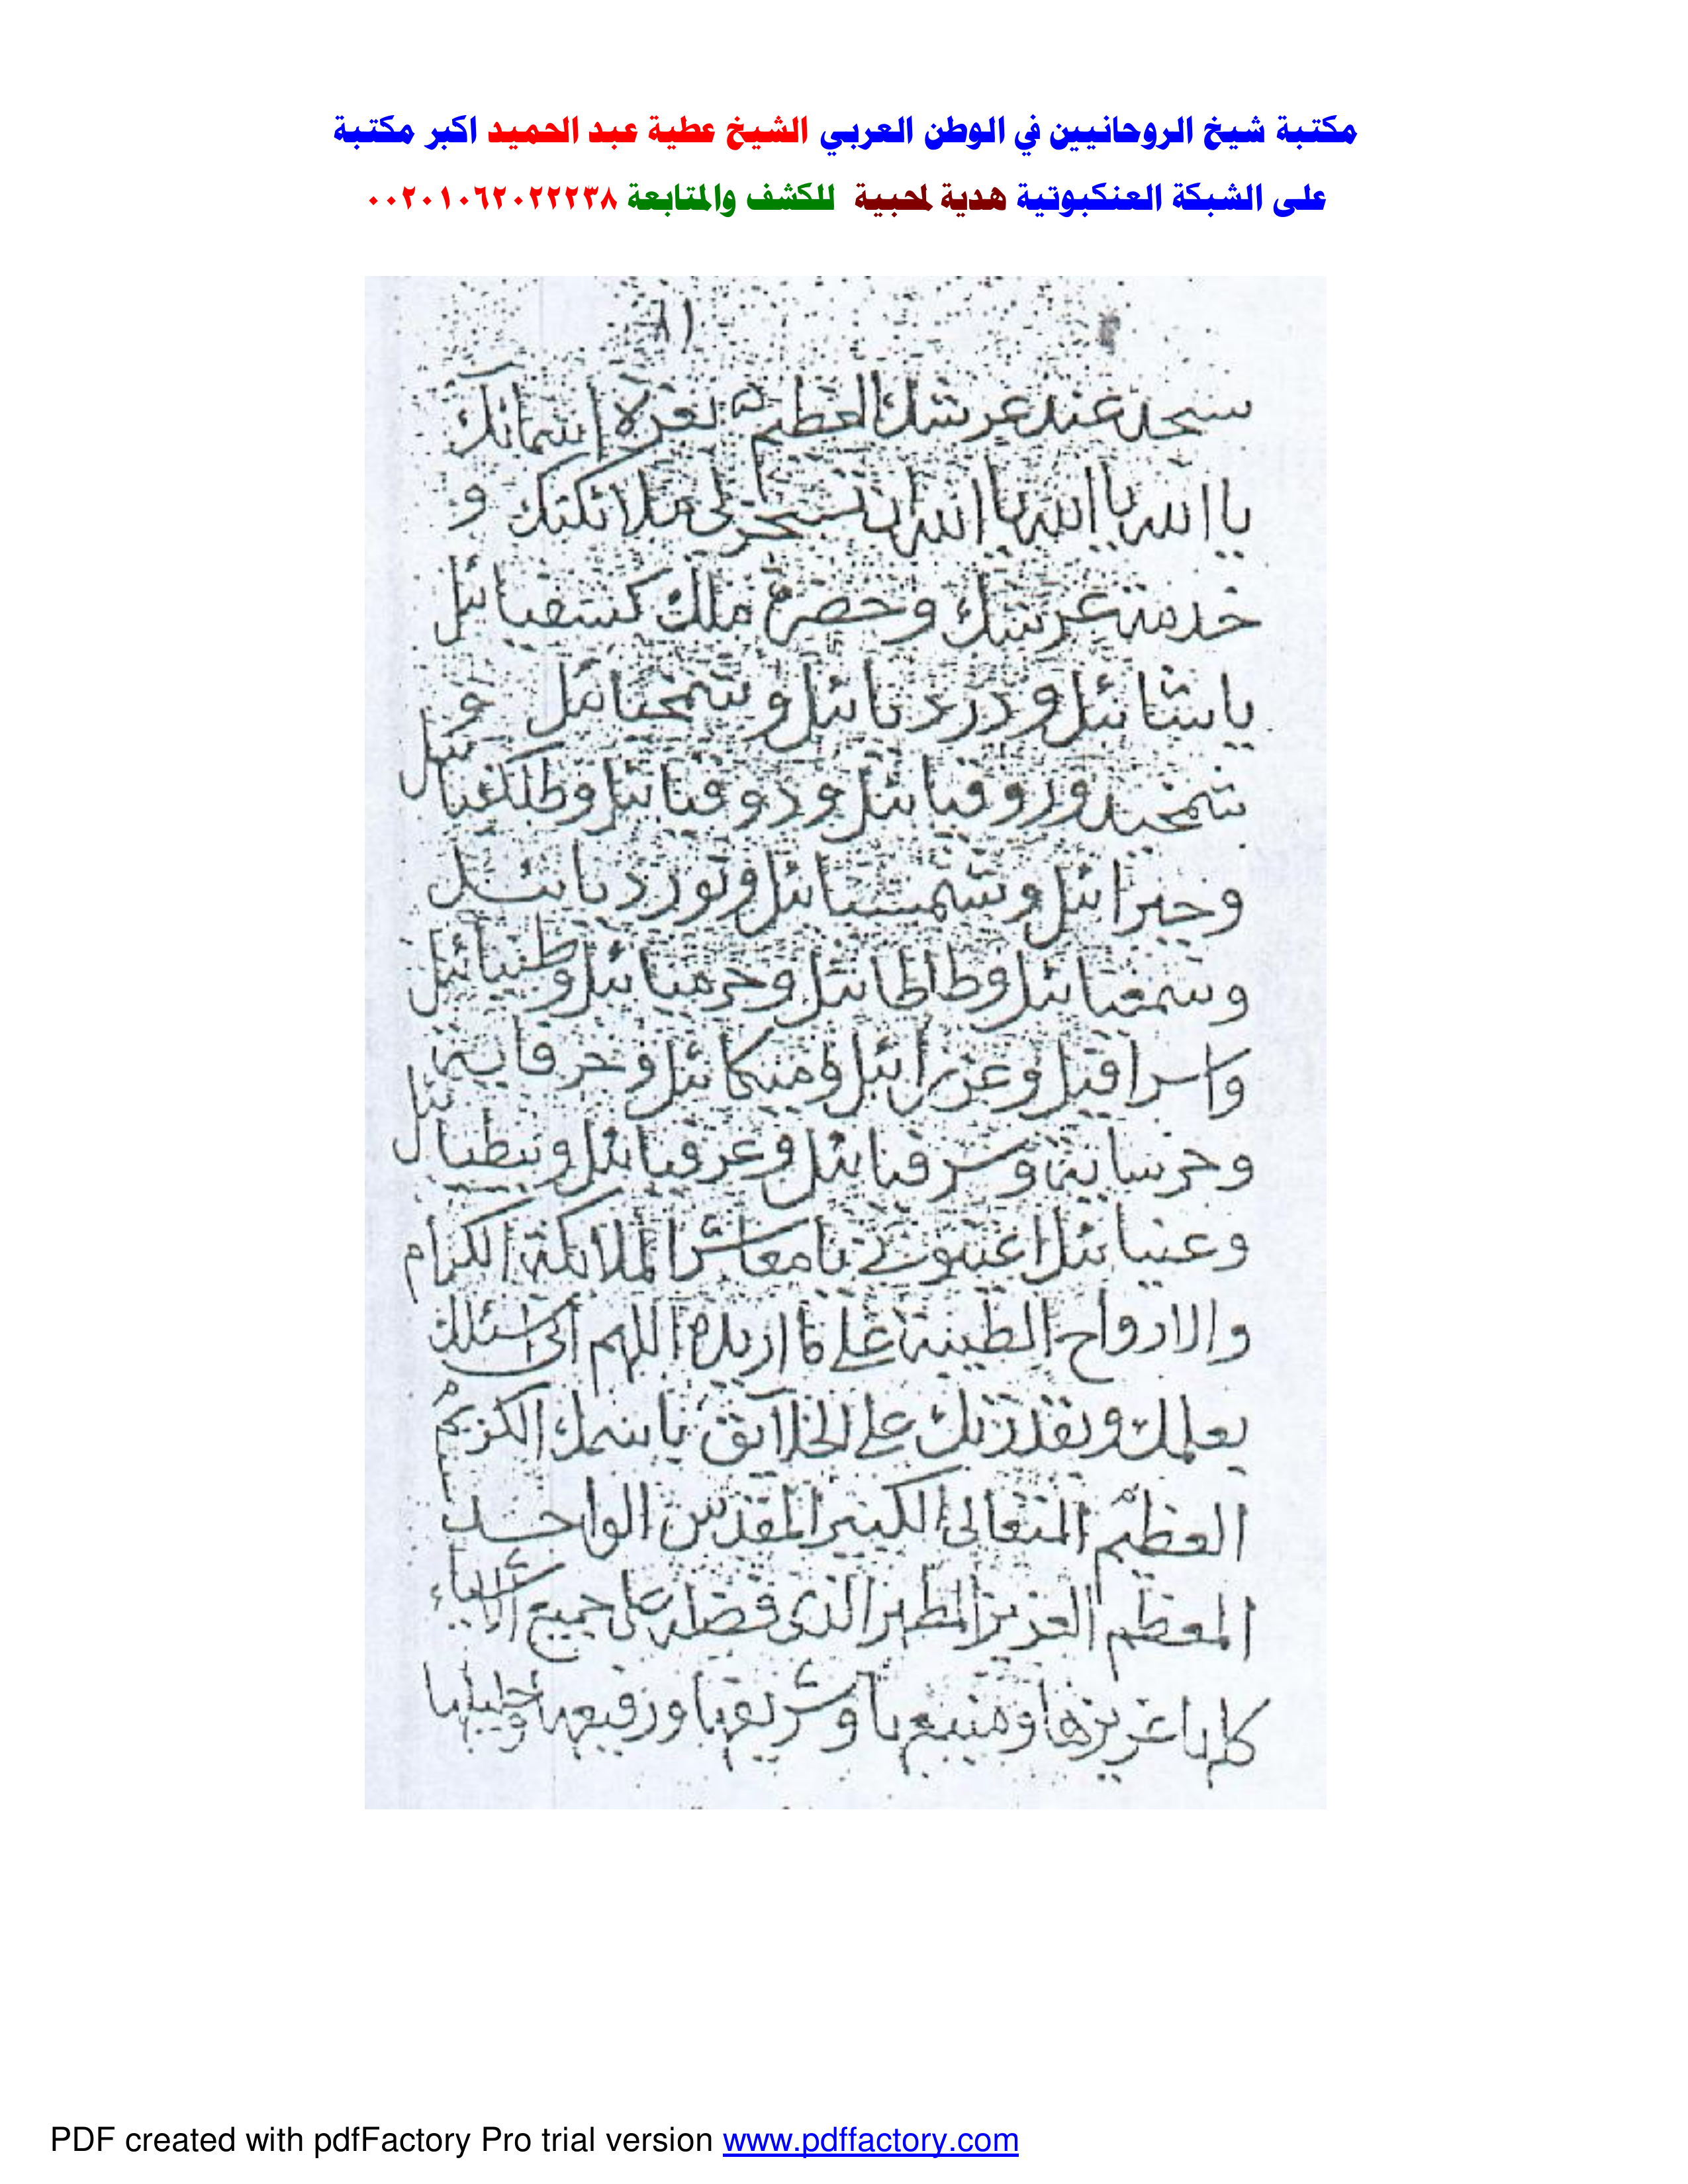 مكتبة شيخ الروحانيين في الوطن العربي الشيخ عطية عبد الحميد اكبر مكتبة
على الشبكة العنكبوتية هدية لمحبية للكشف والمتابعة ٠٠٢٠١٠٦٢٠٢٢٢٣٨
٨١
سجد عند عرشك العظيم بعزة اسمائك
يا الله يا الله يا الله ان تسخر لى ملائكتك و
خدمة عرشك وحضرة ملك كسفيائيل
وشمخيائيل و
وروقيائيل ودوقيائيل
وجبرائيل وشمسيائيل ودرديائيل
وسمعيائيل وطاطائيل
واسرافيل وعزرائيل وميكائيل
وسرفيائيل
وعنيائيل اعينونى يا معاشر الملائكة الكرام
والارواح الطيبة على ما اريده اللهم انى اسئلك
بعلمك وبقدرتك على الخلائق باسمك الكريم
العظيم المتعالى الكبير المقدس الواحد
المعظم العزيز المطهر الذى فضله على جميع الاشياء
كلها عزيزها ومنيعها وشريفها ورفيعها وجليلها
PDF created with pdfFactory Pro trial version www.pdffactory.com